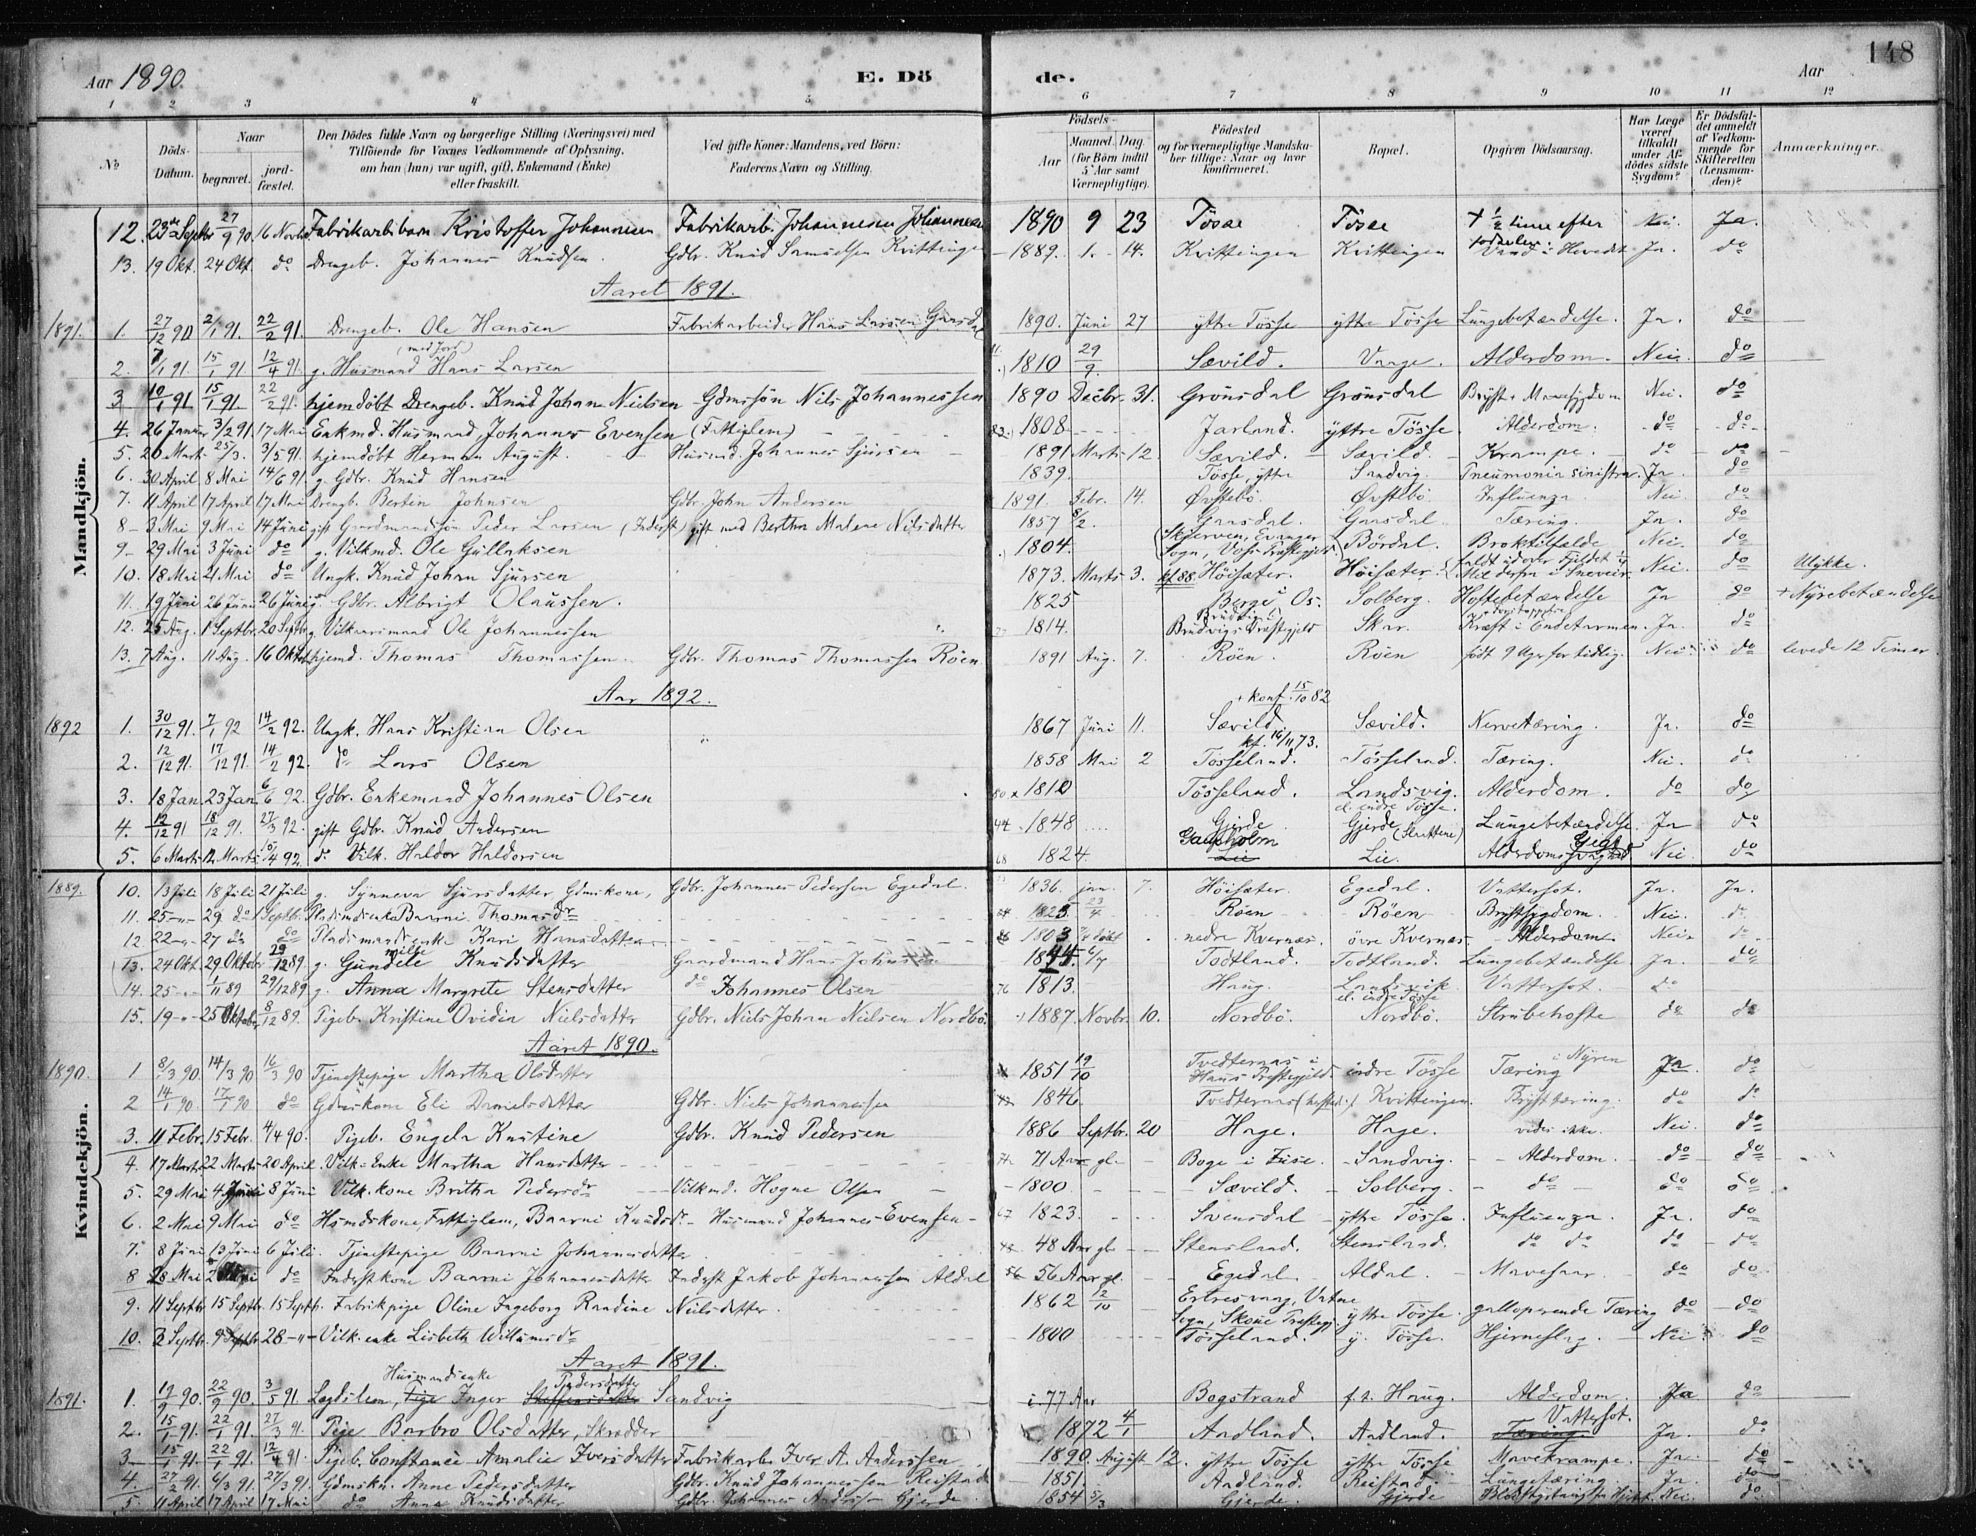 Aar 1890. E. Dö de. Aar 148
1 2 3 4 5 6 7 8 9 10 11 12
No Döds-Datum. Naar begravet. jord-fæstet. Den Dödes fulde Navn og borgerlige Stilling (Næringsvei) med Tilföiende for Voxnes Vedkommende af Oplysning, om han (hun) var ugift, gift, Enkemand (Enke) eller fraskilt. Ved gifte Koner: Mandens, ved Börn: Faderens Navn og Stilling. Födsels- Aar Maaned. Dag. (for Börn indtil 5 Aar samt Værnepligtige). Födested og for værnepligtige Mandskaber tillige: Naar og hvor konfirmeret. Bopæl. Opgiven Dödsaarsag. Har Læge været tilkaldt under Afdödes sidste Sygdom? Er Dödsfaldet anmeldt af Vedkommende for Skifteretten (Lensmanden)? Anmærkninger.
Mandkjön.
12. 23de Septbr 27/9 90. 16 Novbr Fabrikarb. barn Kristoffer Johannesen Fabrikarb. Johannesen Johannesen 1890 9 23 Tösse Tösse + 1/2 time efter födselen. Nei. Ja.
13. 19 Okt. 24 Okt. do Drengeb. Johannes Knudsen. Gdbr. Knud Samuelsen Kvittingen 1889. 1. 14. Kvittingen Kvittingen Vand i Hovedet Ja. do
Aaret 1891.
1891. 1. 27/12 90 2/1 91. 22/2 91. Drengeb. Ole Hansen Fabrikarbeider Hans Larsen Gaasdal 1890. Juni 27 ytre Tösse ytre Tösse Lungebetændelse. Ja. do
2. 7/1 91. 15/1 91 12/4 91. g. Husmand (med Jord) Hans Larsen 1810 29/9. Sævild. Vaage. Alderdom. Nei. do
3 10/1 91 15/1 91. 22/2 91. hjemdöbt Drengeb. Knud Johan Nielsen Gdmssön Nils Johannessen 1890 Decbr. 31. Grönsdal Grönsdal Bryst & Mavesygdom Nei. do
4. 26 Januar 3/2 91. 17 Mai Enkmd. Husmand Johannes Evensen (Fattiglem) 1808 Jarland. ytre Tösse. Alderdom. do do
5. 20 Marts 25/3. 3/5 91. hjemdöbt Herman August. Husmd. Johannes Sjursen 1891 Marts 12. Sævild. Sævild. Krampe. do do
6. 30 April 8 Mai 14/6 91. g. Gdbr. Knud Hansen 1839. Tösse, ytre Sandvig. Pneumonia sinistra. Ja. do
7. 11 April 17 April 17 Mai Drengb. Bertin Johnsen Gdbr. John Andersen 1891. Febr. 14. Övstebö. Övstebö. Influenza. Nei. do
8 3 Mai 9 Mai 14 Juni gift Gaardmandssön Peder Larsen (Inderst) gift med Bertha Malene Nilsdatter 1857 8/2. Gaasdal. Gaasdal. Tæring. Ja. do
9 29 Mai 3 Juni do g. Vilkmd. Ole Gullaksen 1804. (Skjerven, Evanger Sogn, Voss Præstegjeld) Bördal. Broktilfælde Nei. do
10. 18 Mai 21 Mai do Ungk. Knud Johan Sjursen 1873. Marts 3. kf. 88. Höisæter. Höisæter. faldt udover Fjeldet 1/4 Mil derfra i Sneveir. Nei. do Ulykke.
11. 19 Juni 26 Juni 26 Juni g. Gdbr. Albrigt Olaussen. 1825 Berge Os. Solberg. Hoftebetændelse Ja do + Nyrebetændelse
12. 25 Aug. 1 Septbr. 20 Septb. g. Vilkaarsmand Ole Johannessen 1814. Brudvigs Præstegjeld Skar. Kræft i Endetarmen. Ja. do
13. 7 Aug. 11 Aug. 16 Oktob. hjemd. Thomas Thomassen. Gdbr. Thomas Thomassen Röen. 1891 Aug. 7. Röen. Röen född 9 Uger for tidlig. Nei do levede 12 Timer
Aar 1892.
1892 1. 30/12 91. 7/1 92 14/2 92. Ungk. Hans Kristian Olsen 1867 Juni 11. + konf. 15/10 82 Sævild. Sævild. Nervetæring. Ja. do
2. 12/12 91. 17/12 91. 14/2 92. do Lars Olsen 1858 Mai 2 kf. 16/11 73. Tösseland. Tösseland. Tæring. Nei. do
3. 18 Jan. 23 Jan. 6/6 92. Gdbr. Enkemand Johannes Olsen 80 1810 Tösseland. Landsvig. el. indre Tösse. Alderdom. do do
4. 12/12 91 18/12 91. 27/3 92. gift Gdbr. Knud Andersen 44 1848 Gjerde Gjerde (Slottene) Lungebetændelse Ja do
5. 6 Marts 12 Marts 10/4 92. do Vilk. Haldor Haldorsen 68 1824. Gaupholm Lie Lie. Alderdomssvaghed Gigt Nei. do
Kvindekjön.
1889. 10. 13 Juli 18 Juli 21 Juli g. Synneva Sjursdatter Gdmskone, Gdbr. Johannes Pedersen Egedal. 1836. jan. 7. Höisæter. Egedal. Vattersot. Ja. Ja.
11. 25 29 do 1 Septbr. Pladsmdsenke Baarni Thomasdr 1825. 23/4 Röen Röen Brystsygdom. Nei. do
12 22 27 do do Pladsmandsenke Kari Hansdatter 1803 nedre Kvernæs. övre Kvernæs. Alderdom. Nei do
13. 24 Okt. 29 Oktober 29/12 89. g. Gundele Knudsdatter Gaardmand Hans Todtland. Todtland. Lungebetændelse Ja. do
14. 25 1/11 89 29/12 89 g. Anna Margrete Stensdatter do Johannes Olsen 76 1813. Haug. Landsvik el. indre Tösse Vattersot. do
15. 19 25 Oktober 8/12 89. Pigeb. Kristine Ovidia Nielsdatter Gdbr. Niels Johan Nielsen Nordbö. 1887. Novbr. 10. Nordbö. Nordbö. Strubehoste do do
Aaret 1890.
1890. 1 8/3 90. 14/3 90 16/3 90 Tjenestepige Martha Olsdatter 1851 19/10 Tvedternæs i Haus Prestegjeld. indre Tösse Tæring i Nyren Ja do
2 14/1 90. 17/1 90 do Gdmskone Eli Danielsdatter Gdbr. Niels Johannessen 1846. Tvedternæs Kvittingen. Brysttæring. do do
3. 11 Febr. 15 Febr. 4/4 90. Pigeb. Engela Kristine Gdbr. Knud Pedersen 1886 Septbr. 20 Hage. Hage. vides ikke. Nei. do
4. 17 Marts 22 Marts 20 April Vilk-Enke Martha Hansdatter 71 Aar gl. Boge i Sandvig. Alderdom. do do
5. 29 Mai 4 Juni 8 Juni Vilk. kone Britha Pedersdr Vilkmd. Hogne Olsen 1800. Sævild. Solberg. do do do
6. 2 Mai 9 Mai do Husmdskone, Fattiglem, Baarni Knudsdr Husmand Johannes Evensen 67 1823. Svensdal ytre Tösse. Influenza. Ja. do
7. 8 Juni 13 Juni 6 Juli. Tjenestepige Baarni Johannesdatter. 48 Aar gl. Stensland. Stensland. do do do do
8 28 Mai do Inderst kone Baarni Johannesdatter Inderst Jakob Johannessen Aldal 56 56 Aar gl. Egedal. Aldal. Mavesaar. do do
9. 11 Septbr. 15 Septbr. 15 Septb. Fabrikpige Oline Ingeborg Randine Nielsdatter. 1862 12/10 Ertresvaag, Vatne Sogn, Præstegj. ytre Tösse. galloperende Tæring do do
10. 3 Septb. 9 Septb 28 Vilk. enke Lisbeth Willumsdr 1800 Tösseland. y. Tösse. Hjerneslag. Nei do
Aaret 1891.
1891. 1. 19/9 90. 22/9 90. 3/5 91. Lægdslem, Husmandsenke Pige Inger Pedersdatter Steffensdatter Sandvig 77 Aar Bogstrand f.t. Haug. Alderdom. Ja do
2. 15/1 91. 22/1 91. 27/3 91. Pige Barbro Olsdatter, Skrædder 1872 4/1 Aadland. Aadland. Tæring. Vattersot. Ja. do
3 15/1 91. 22/1 91. 12/4 91. Pigeb. Constance Amalie Iversdatter Fabrikarb. Iver A. Anderssen 1890. August 12. ytre Tösse ytre Tösse Mavekrampe. Ja. do
4. 27/2 91. 6/3 91. 27/3 91. Gdmskn. Anne Pedersdatter Gdbr. Knud Johannessen Reistad 1851. Aadland. Reistad Lungetæring. Ja. do
5. 11 April 17 April 17 Mai do Anna Knudsdatter Gdbr. Johannes Anders Gjerde. 1854 5/3 Gjerde. Gjerde Nei. do